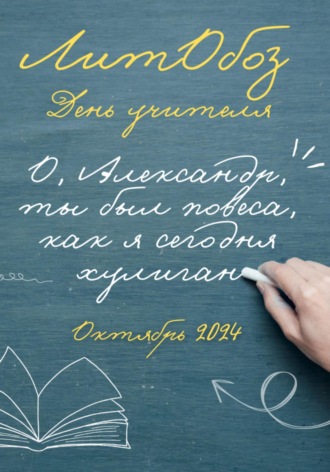 ЛитОбоз
День учителя
О, Александр,
ты был повеса,
как я сегодня
хулиган
Октябрь 2024